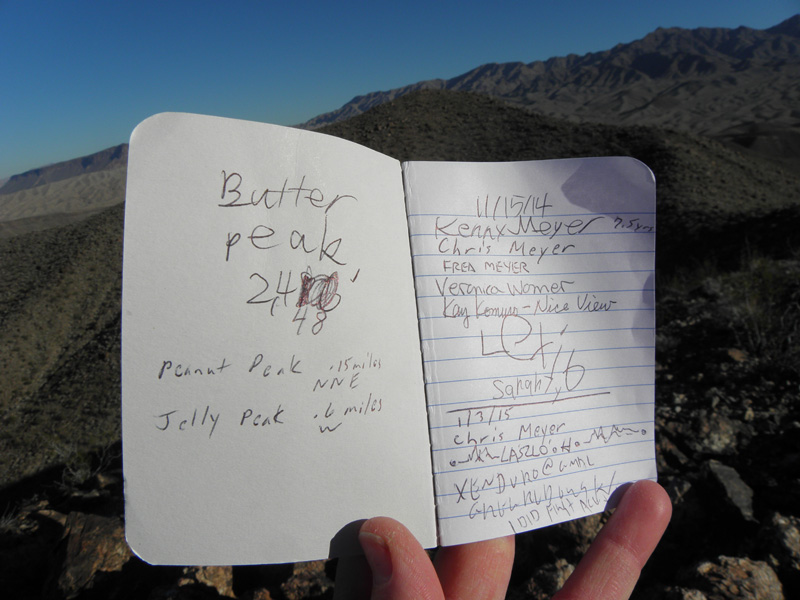 Butter
peak
2,4
48
Peanut Peak .15 miles
NNE
Jelly Peak .6 miles
W
11/15/14
Kenny Meyer 7.5 yrs
Chris Meyer
FRED MEYER
Veronica Womer
Kay - Nice View
Lexi, 6
Sarah
1/3/15
Chris Meyer
LÁSZLÓ
XENDURO@GMAIL
I DID